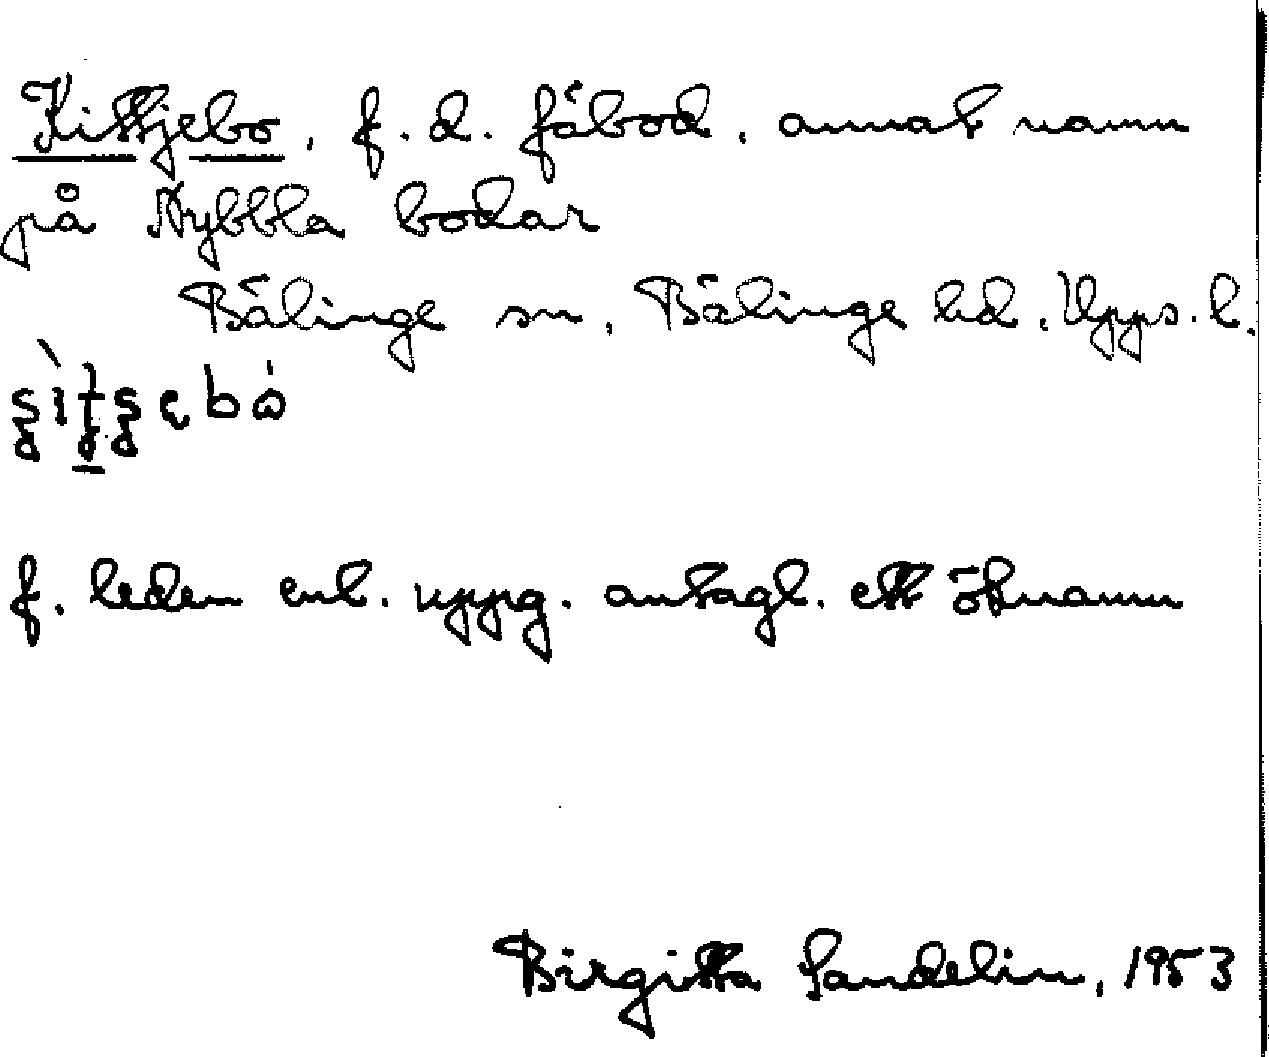 Kittjebo, f. d. fäbod, annat namn
på Nybbla bodar
Bälinge sn, Bälinge hd, Upps. l.
f. leden enl. uppg. antagl. ett öknamn
Birgitta Sandelin, 1953